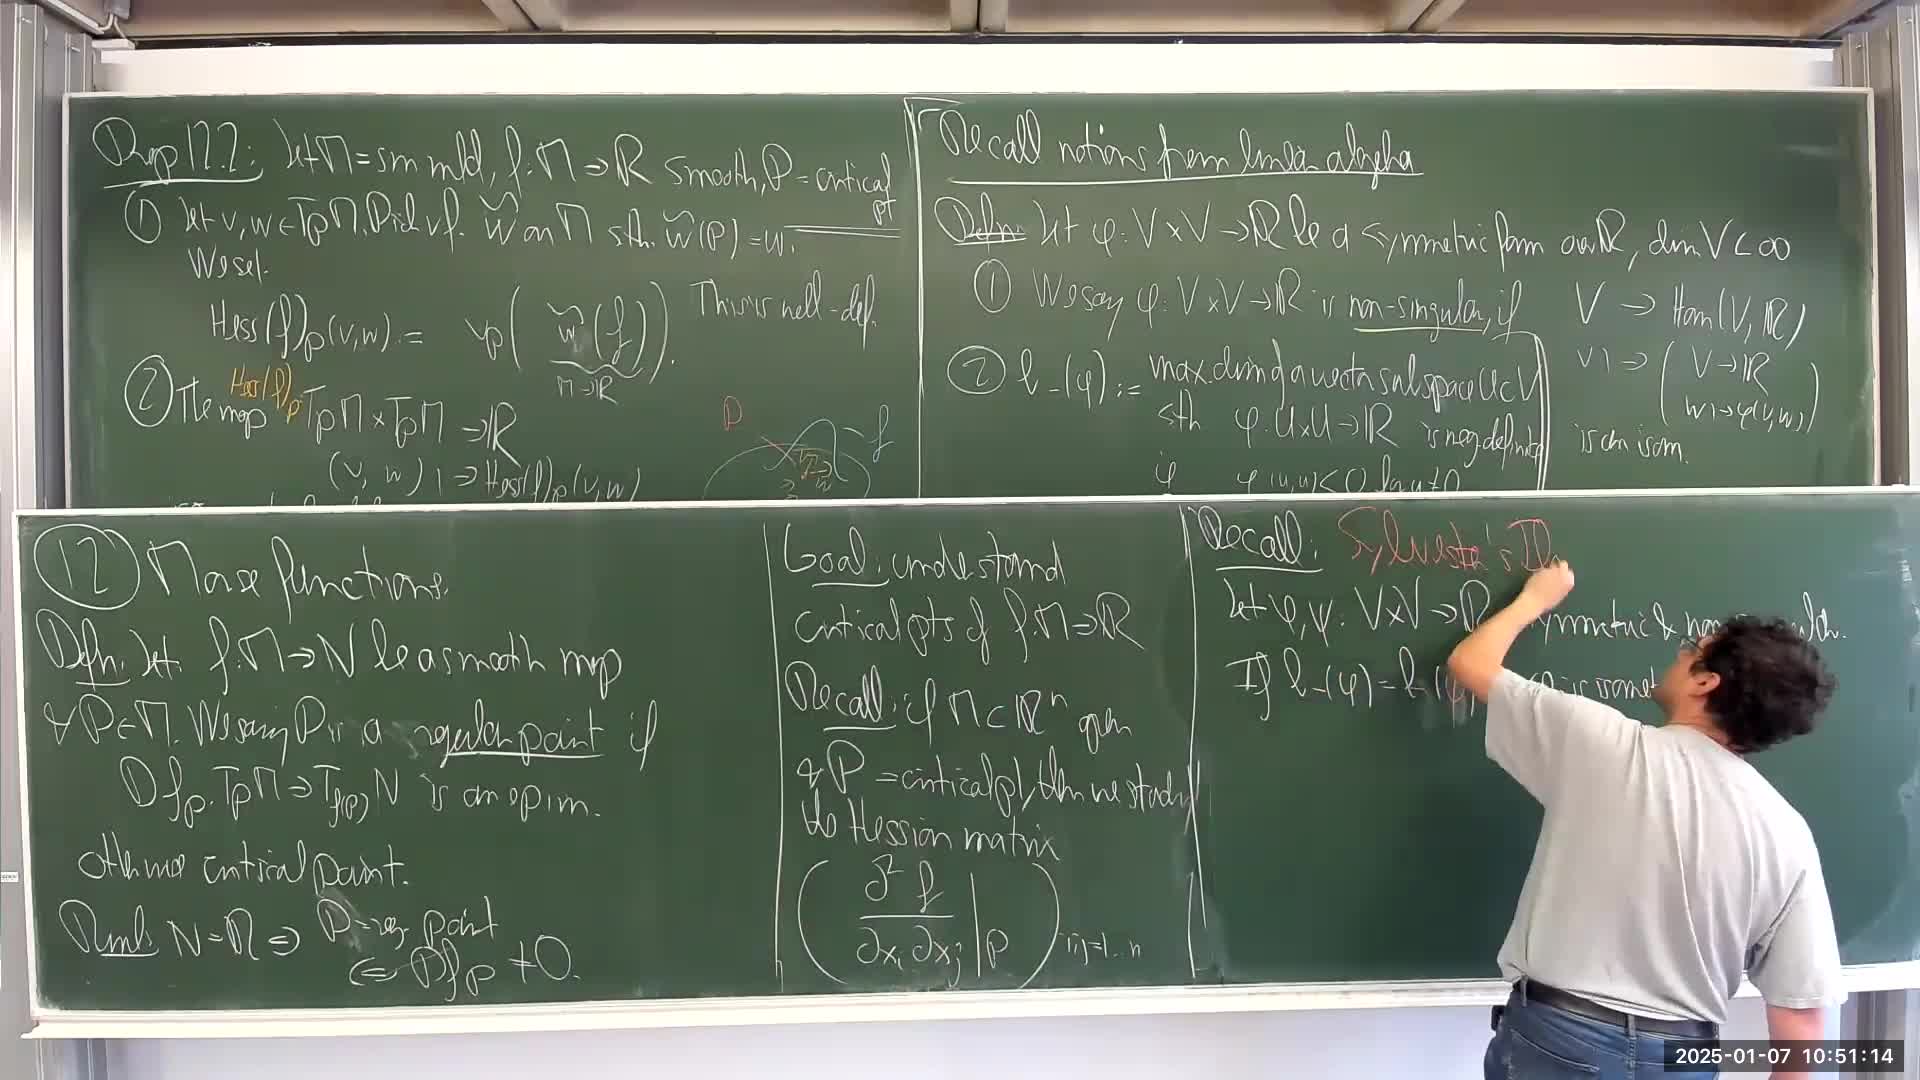 Prop 12.2: Let M = sm mfd, f: M → ℝ smooth, P = critical pt
① Let v, w ∈ TpM. Pick vf. w̃ on M s.th. w̃(P) = w.
We set.
Hess(f)p(v,w) := vp( w̃(f) ). This is well-def.
M→ℝ
② The map Hess(f)p: TpM × TpM → ℝ
(v, w) ↦ Hess(f)p(v,w)
P
f
Recall notions from linear algebra
Defn: Let φ: V×V → ℝ be a symmetric form over ℝ, dim V < ∞
① We say φ: V×V → ℝ is non-singular, if
V → Hom(V, ℝ)
v ↦ ( V → ℝ
w ↦ φ(v,w) )
is an isom.
② b₋(φ) := max. dim of a vector subspace U ⊂ V
sth φ: U×U → ℝ is neg. definite
if φ(u,u) < 0 for u ≠ 0
⑫ Morse functions.
Defn: Let f: M → N be a smooth map
& P ∈ M. We say P is a regular point if
Dfp: TpM → Tf(p)N is an epim.
Otherwise critical point.
Rmk: N = ℝ ⇒ P = reg. point
⇔ Dfp ≠ 0.
Goal: understand
critical pts of f: M → ℝ
Recall: if M ⊂ ℝⁿ open
& P = critical pt, then we study
the Hessian matrix
( ∂²f / ∂xi ∂xj | P ) i,j=1...n
Recall: Sylvester's Th
Let φ, ψ: V×V → ℝ symmetric &
If b₋(φ) = b₋(ψ)